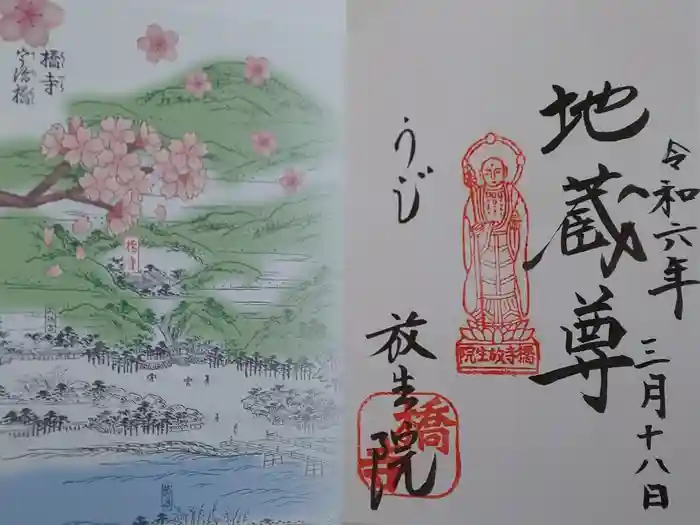 橋寺
宇治橋
橋寺
令和六年
三月十八日
地蔵尊
橋寺放生院
うじ
放生院
橋寺